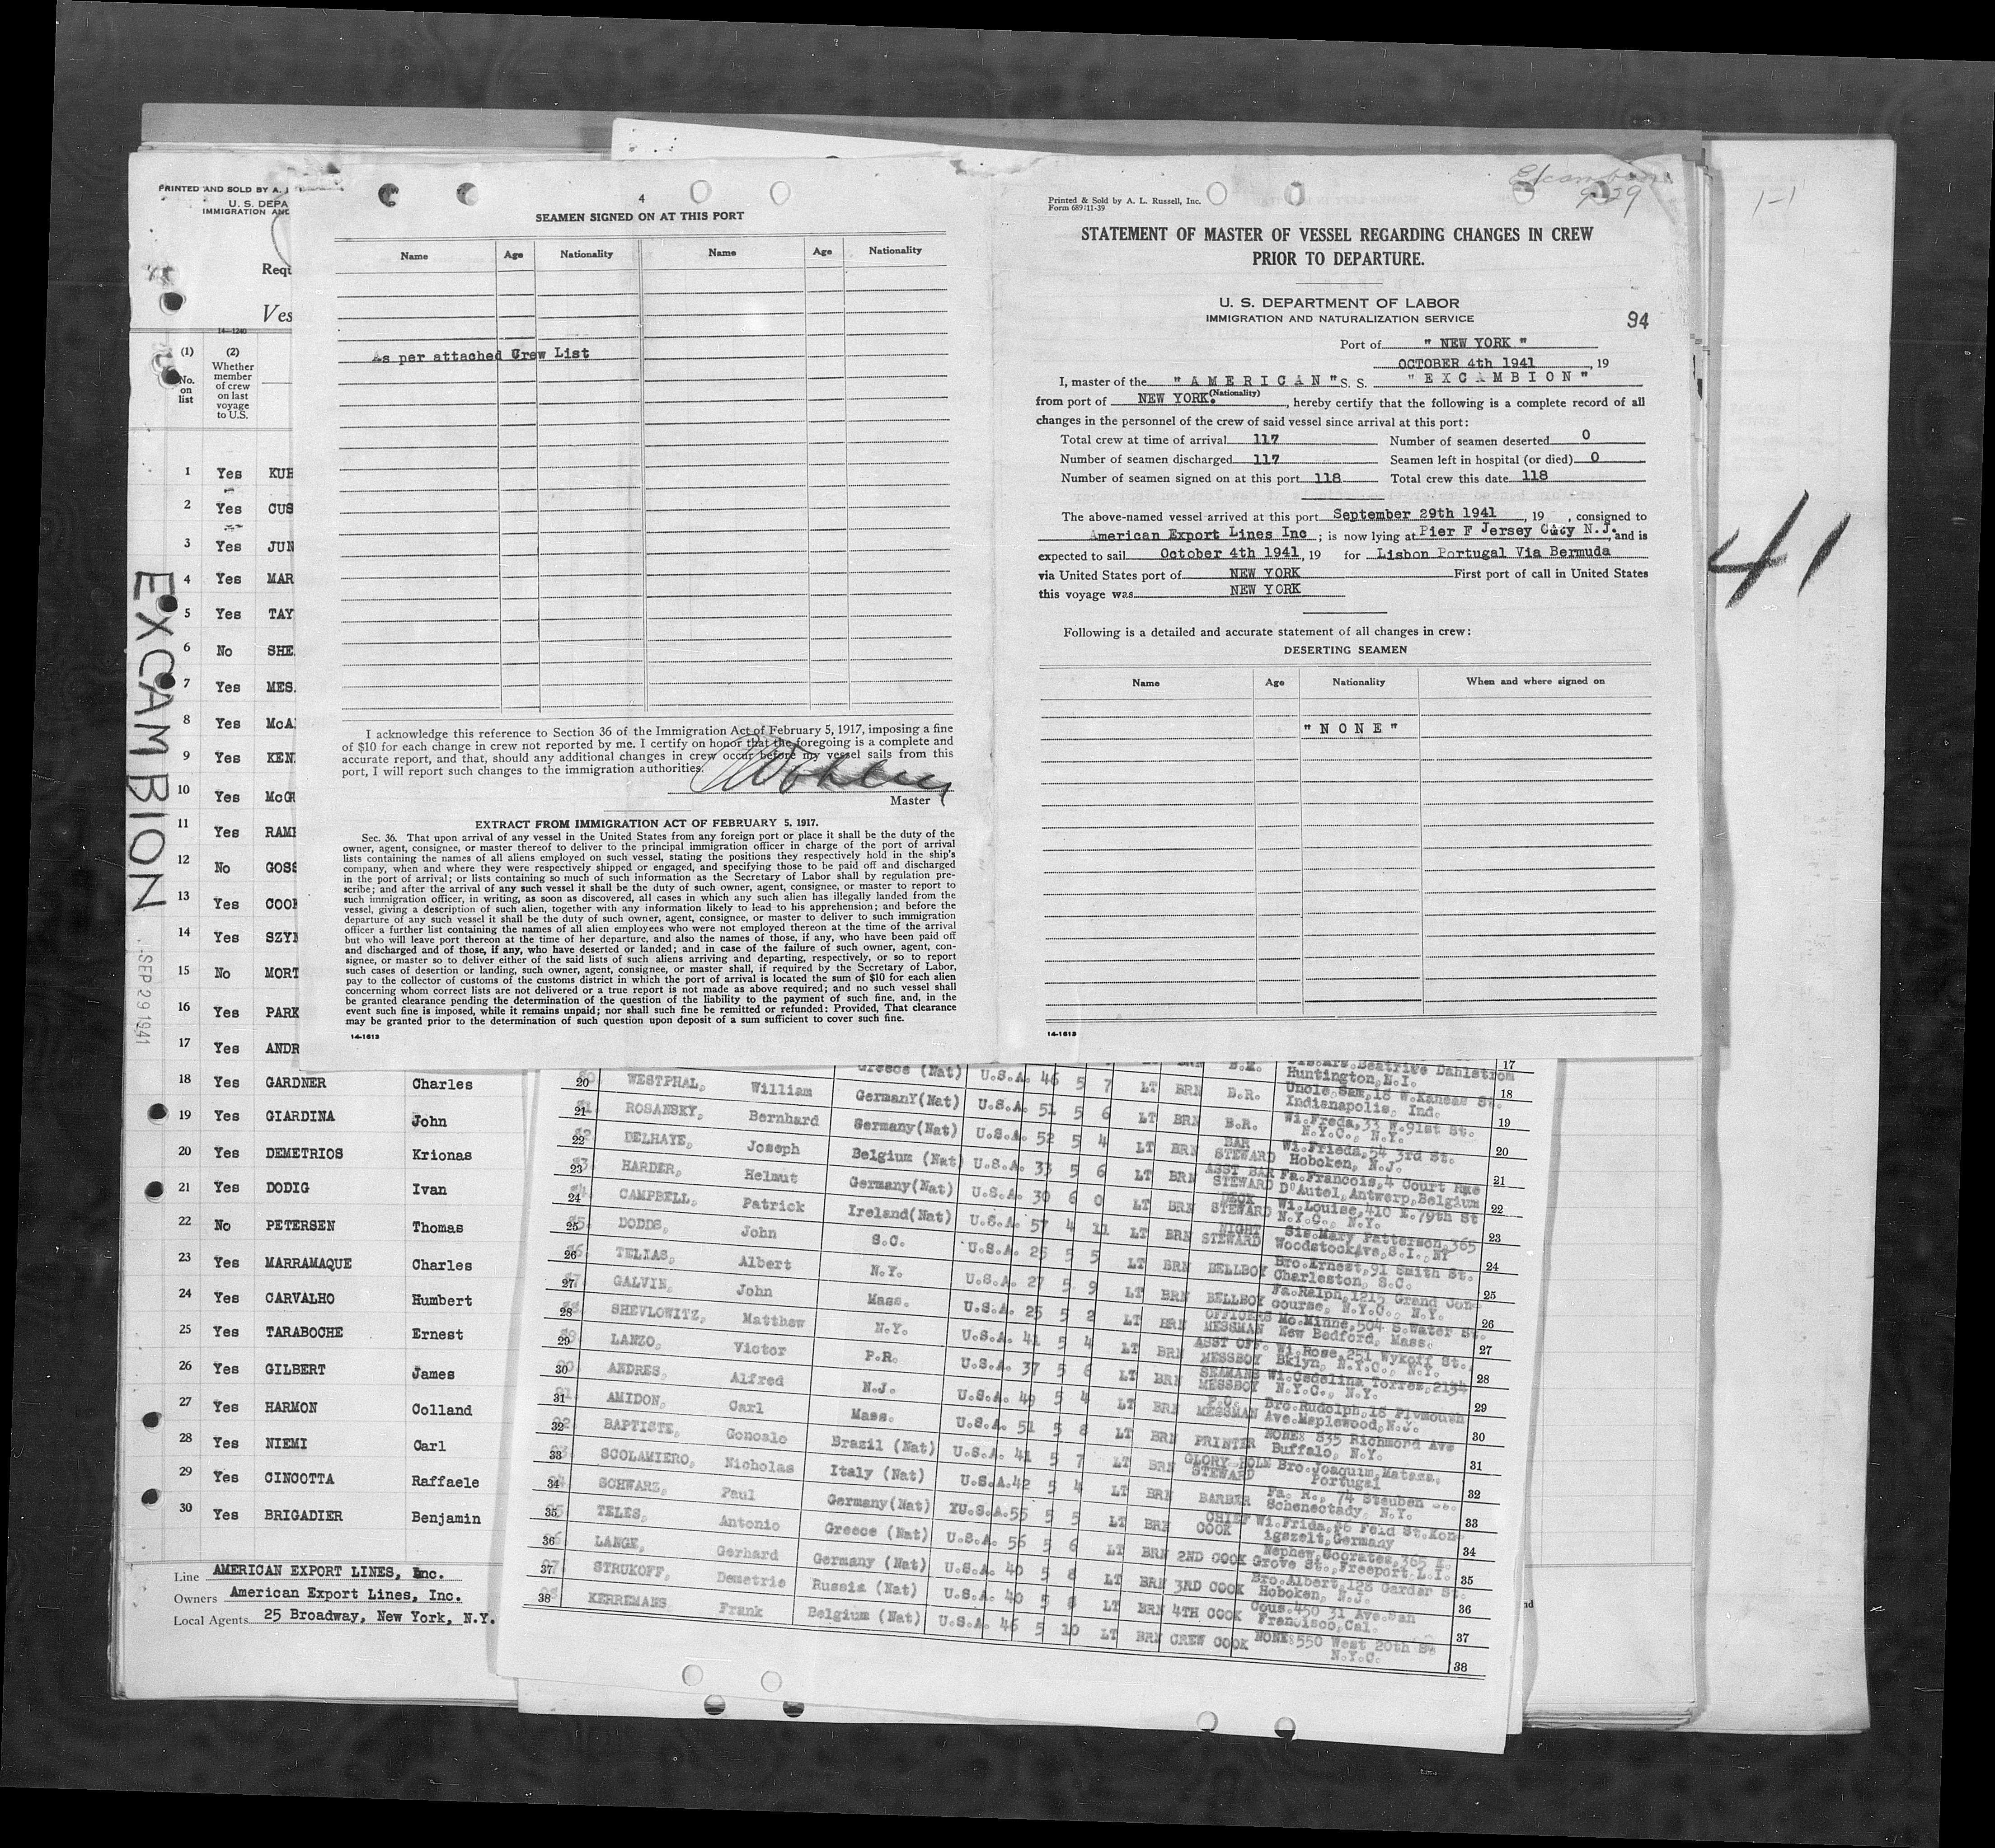 PRINTED AND SOLD BY A.
U. S. DEPA
IMMIGRATION AND
Requ
Ves
14-1240
(1)
No.
on
list
(2)
Whether
member
of crew
on last
voyage
to U.S.
1 Yes KUH
2 Yes CUS
3 Yes JUN
4 Yes MAR
5 Yes TAY
6 No SHE
7 Yes MES
8 Yes McA
9 Yes KEN
10 Yes McG
11 Yes RAM
12 No GOSS
13 Yes COO
14 Yes SZY
15 No MORT
16 Yes PARK
17 Yes ANDR
18 Yes GARDNER Charles
19 Yes GIARDINA John
20 Yes DEMETRIOS Krionas
21 Yes DODIG Ivan
22 No PETERSEN Thomas
23 Yes MARRAMAQUE Charles
24 Yes CARVALHO Humbert
25 Yes TARABOCHE Ernest
26 Yes GILBERT James
27 Yes HARMON Colland
28 Yes NIEMI Carl
29 Yes CINCOTTA Raffaele
30 Yes BRIGADIER Benjamin
Line AMERICAN EXPORT LINES, Inc.
Owners American Export Lines, Inc.
Local Agents 25 Broadway, New York, N.Y.
EXCAMBION
SEP 29 1941
4
SEAMEN SIGNED ON AT THIS PORT
Name Age Nationality Name Age Nationality
As per attached Crew List
I acknowledge this reference to Section 36 of the Immigration Act of February 5, 1917, imposing a fine
of $10 for each change in crew not reported by me. I certify on honor that the foregoing is a complete and
accurate report, and that, should any additional changes in crew occur before my vessel sails from this
port, I will report such changes to the immigration authorities.
Master
EXTRACT FROM IMMIGRATION ACT OF FEBRUARY 5, 1917.
Sec. 36. That upon arrival of any vessel in the United States from any foreign port or place it shall be the duty of the
owner, agent, consignee, or master thereof to deliver to the principal immigration officer in charge of the port of arrival
lists containing the names of all aliens employed on such vessel, stating the positions they respectively hold in the ship's
company, when and where they were respectively shipped or engaged, and specifying those to be paid off and discharged
in the port of arrival; or lists containing so much of such information as the Secretary of Labor shall by regulation pre-
scribe; and after the arrival of any such vessel it shall be the duty of such owner, agent, consignee, or master to report to
such immigration officer, in writing, as soon as discovered, all cases in which any such alien has illegally landed from the
vessel, giving a description of such alien, together with any information likely to lead to his apprehension; and before the
departure of any such vessel it shall be the duty of such owner, agent, consignee, or master to deliver to such immigration
officer a further list containing the names of all alien employees who were not employed thereon at the time of the arrival
but who will leave port thereon at the time of her departure, and also the names of those, if any, who have been paid off
and discharged and of those, if any, who have deserted or landed; and in case of the failure of such owner, agent, con-
signee, or master so to deliver either of the said lists of such aliens arriving and departing, respectively, or so to report
such cases of desertion or landing, such owner, agent, consignee, or master shall, if required by the Secretary of Labor,
pay to the collector of customs of the customs district in which the port of arrival is located the sum of $10 for each alien
concerning whom correct lists are not delivered or a true report is not made as above required; and no such vessel shall
be granted clearance pending the determination of the question of the liability to the payment of such fine, and, in the
event such fine is imposed, while it remains unpaid; nor shall such fine be remitted or refunded: Provided, That clearance
may be granted prior to the determination of such question upon deposit of a sum sufficient to cover such fine.
14-1613
Excambion
9-29
Printed & Sold by A. L. Russell, Inc.
Form 689:11-39
STATEMENT OF MASTER OF VESSEL REGARDING CHANGES IN CREW
PRIOR TO DEPARTURE.
U. S. DEPARTMENT OF LABOR
IMMIGRATION AND NATURALIZATION SERVICE
94
Port of " NEW YORK "
OCTOBER 4th 1941, 19
I, master of the " A M E R I C A N " S. S. " E X C A M B I O N "
(Nationality)
from port of NEW YORK., hereby certify that the following is a complete record of all
changes in the personnel of the crew of said vessel since arrival at this port:
Total crew at time of arrival 117 Number of seamen deserted 0
Number of seamen discharged 117 Seamen left in hospital (or died) 0
Number of seamen signed on at this port 118 Total crew this date 118
The above-named vessel arrived at this port September 29th 1941, 19 , consigned to
American Export Lines Inc ; is now lying at Pier F Jersey City N.J. and is
expected to sail October 4th 1941, 19 for Lisbon Portugal Via Bermuda
via United States port of NEW YORK First port of call in United States
this voyage was NEW YORK
Following is a detailed and accurate statement of all changes in crew:
DESERTING SEAMEN
Name Age Nationality When and where signed on
" N O N E "
14-1613
1-1
41
Greece (Nat)
Beatrice Dahlstrom 17
Huntington, N.I.
20 WESTPHAL, William Germany(Nat) U.S.A. 46 5 7 LT BRN B.R. Uncle, Sam, 18 W.Kansas St. 18
Indianapolis, Ind.
21 ROSANSKY, Bernhard Germany(Nat) U.S.A. 51 5 6 LT BRN B.R. Wi.Freda, 33 W.91st St. 19
N.Y.C., N.Y.
22 DELHAYE, Joseph Belgium (Nat) U.S.A. 52 5 4 LT BRN BAR STEWARD Wi.Frieda, 54 3rd St. 20
Hoboken, N.J.
23 HARDER, Helmut Germany(Nat) U.S.A. 33 5 6 LT BRN ASST BAR STEWARD Fa.Francois, 4 Court Rue 21
D'Autel, Antwerp, Belgium
24 CAMPBELL, Patrick Ireland(Nat) U.S.A. 30 6 0 LT BRN DECK STEWARD Wi.Louise, 410 E.79th St 22
N.Y.C., N.Y.
25 DODDS, John S.C. U.S.A. 57 4 11 LT BRN NIGHT STEWARD Sis.Mary Patterson, 365 23
Woodstock Ave, S.I., NY
26 TELIAS, Albert N.Y. U.S.A. 25 5 5 LT BRN BELLBOY Bro.Ernest, 91 Smith St. 24
Charleston, S.C.
27 GALVIN, John Mass. U.S.A. 27 5 9 LT BRN BELLBOY Fa.Ralph, 1215 Grand Con- 25
course, N.Y.C., N.Y.
28 SHEVLOWITZ, Matthew N.Y. U.S.A. 25 5 2 LT BRN OFFICERS MESSMAN Mo.Minne, 504 S.Water St. 26
New Bedford, Mass.
29 LANZO, Victor P.R. U.S.A. 41 5 4 LT BRN ASST OFF. MESSBOY Wi.Rose, 251 Wykoff St., 27
Bklyn, N.Y.C., N.Y.
30 ANDRES, Alfred N.J. U.S.A. 37 5 6 LT BRN SEAMANS MESSBOY Wi.Cedelina Torres, 2134 28
N.Y.C., N.Y.
31 AMIDON, Carl Mass. U.S.A. 49 5 4 LT BRN P.O. MESSMAN Bro.Rudolph, 18 Plymouth 29
Ave.Maplewood, N.J.
32 BAPTISTE, Goncalo Brazil (Nat) U.S.A. 51 5 8 LT BRN PRINTER NONE: 835 Richmond Ave 30
Buffalo, N.Y.
33 SCOLAMIERO, Nicholas Italy (Nat) U.S.A. 41 5 7 LT BRN GLORY HOLE STEWARD Bro.Joaquim, Mataza, 31
Portugal
34 SCHWARZ, Paul Germany(Nat) U.S.A. 42 5 4 LT BRN BARBER Fa. R., 74 Steuben 32
Schenectady, N.Y.
35 TELES, Antonio Greece (Nat) U.S.A. 55 5 5 LT BRN CHIEF COOK Wi.Frida, Feld St.Kon- 33
igszelt, Germany
36 LANGE, Gerhard Germany (Nat) U.S.A. 56 5 6 LT BRN 2ND COOK Nephew, Socrates, 365 E. 34
Grove St., Freeport, L.I.
37 STRUKOFF, Demetrie Russia (Nat) U.S.A. 40 5 8 LT BRN 3RD COOK Bro.Albert, 128 Garden St. 35
Hoboken, N.J.
38 KERREMANS Frank Belgium (Nat) U.S.A. 40 5 8 LT BRN 4TH COOK Cous.450 31 Ave.San 36
Francisco, Cal. 37
U.S.A. 46 5 10 LT BRN CREW COOK NONE:550 West 20th St
N.Y.C. 38